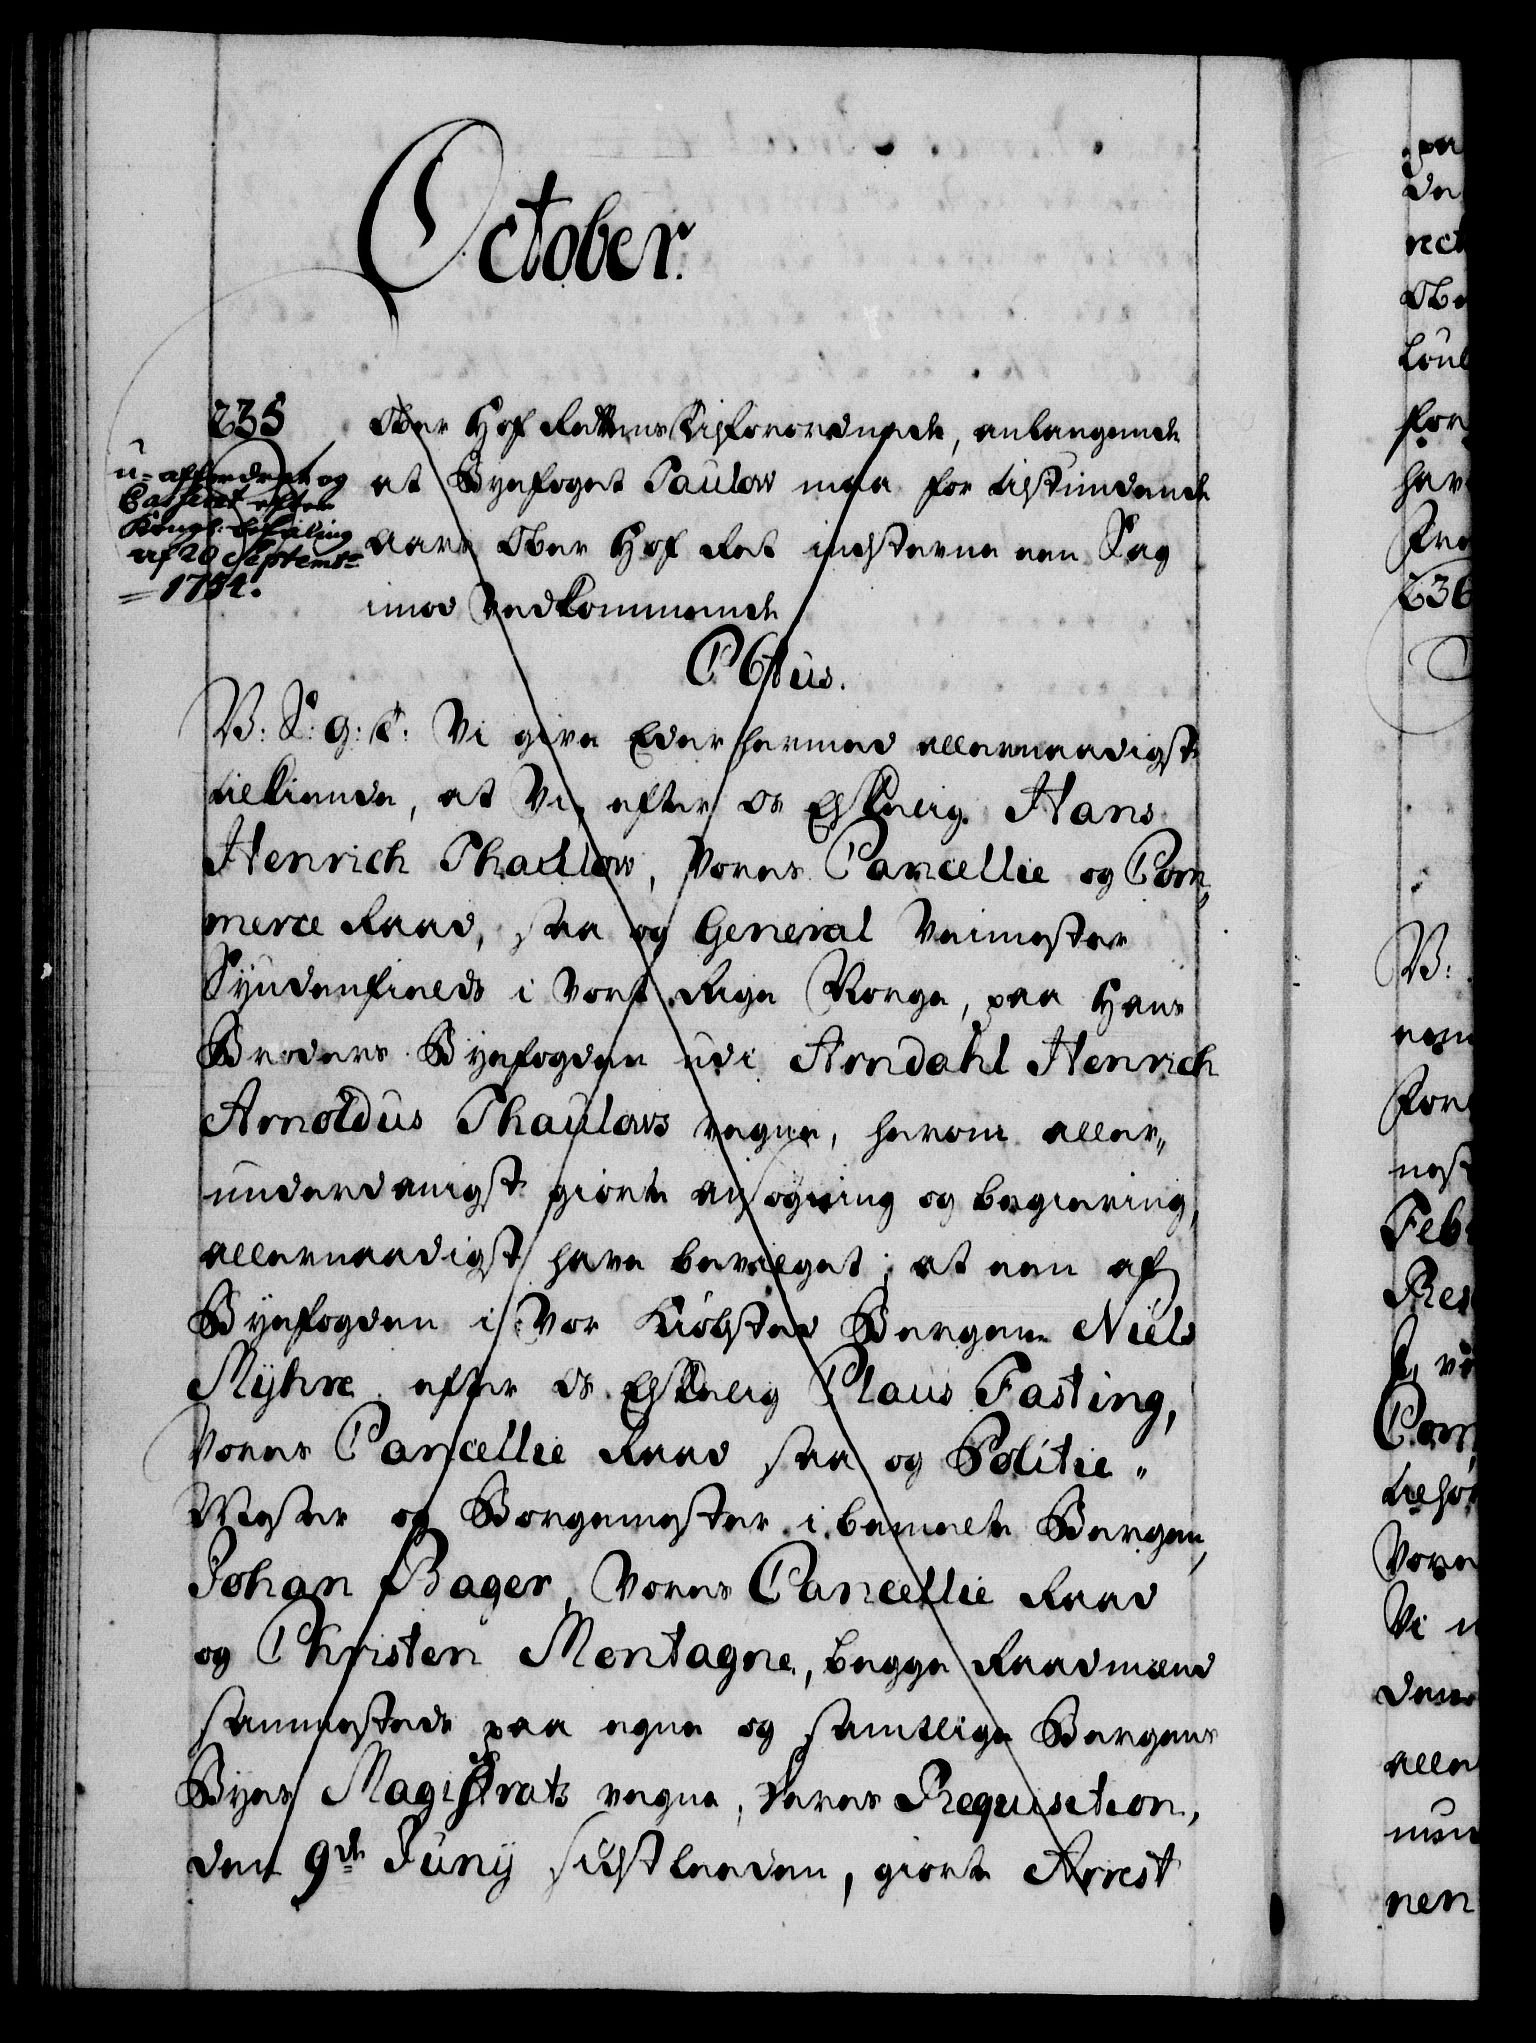 October.
235
u-affordret og
Casseret efter
Kongl: befaling
af 20 Septembr:
1754.
Ober Hof Rettens Tilforordnede, anlangende
at Byefoget Paulow maa for tilstundende
aars Ober Hof Ret indstevne een Sag
imod Vedkommende
C 6tus.
V: S: G: T: Vi give Eder hermed allernaadigst
tilkiende, at Vi, efter Os Elskelig Hans
Henrich Thaulow, Vores Cancellie og Com,,
merce Raad, saa og General Veimester
Syndenfields i Vort Rige Norge, paa Hans
Broders Byefogden udi Arndahl Henrich
Arnoldus Thaulows vegne, herom aller,,
underdanigst giorte ansøgning og begiering,
allernaadigst have bevilget; at een af
Byefogden i Vor Kiøbsted Bergen Niels
Myhre efter Os Elskelig Claus Fasting,
Vores Cancellie Raad saa og Politie,,
Mester og Borgemester i bemelte Bergen,
Johan Bager, Vores Cancellie Raad
og Christen Montagne, begge Raadmænd
sammesteds paa egne og samtlige Bergens
Byes Magistrats vegne, deres Requisition,
den 9de Juny sidstleeden, giorte Arrest
pa
de
rect
Obe
for
hav
236
V:
Feb
Vi
alle
nen